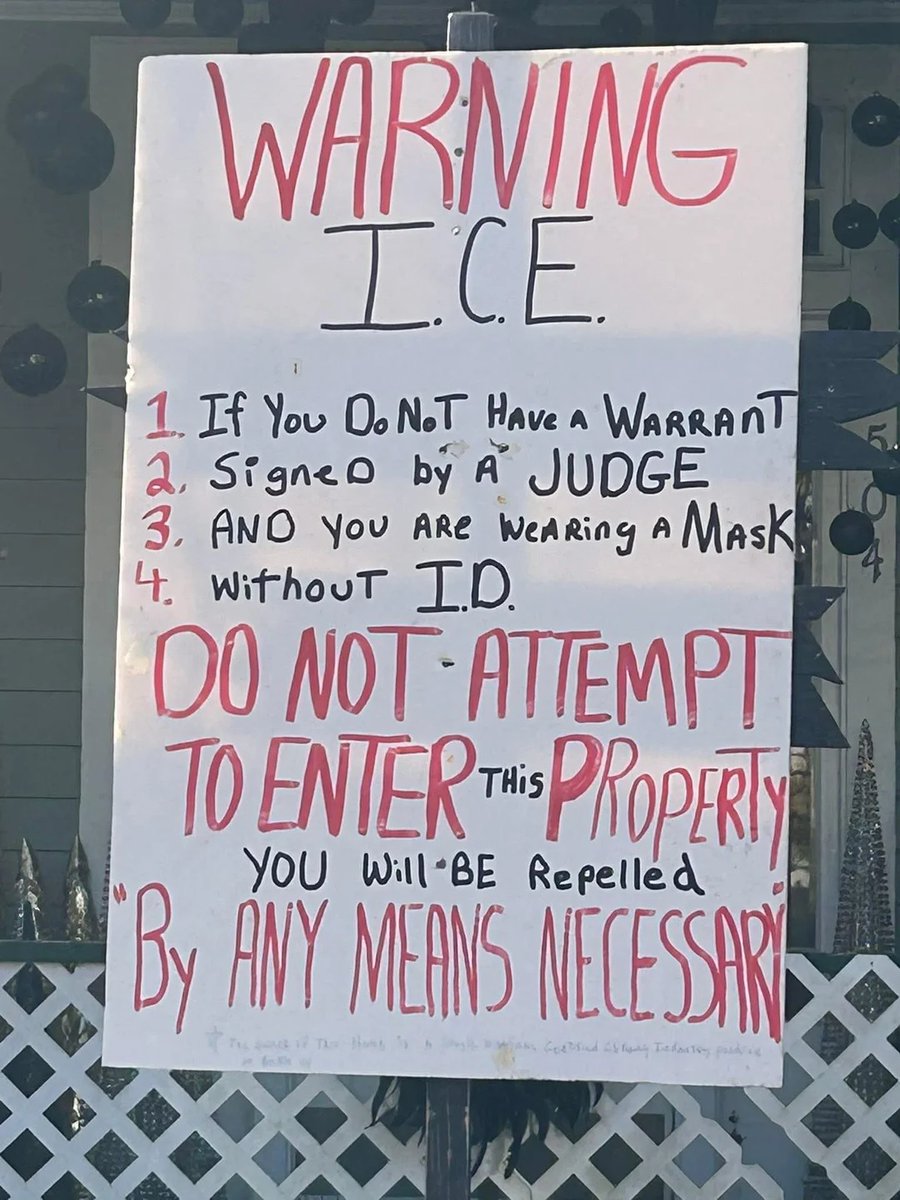 WARNING
I.C.E.
1. If You Do Not Have a Warrant
2. Signed by a JUDGE
3. AND you are wearing a Mask
4. without I.D.
DO NOT ATTEMPT
TO ENTER THis PROPERTY
YOU Will BE Repelled
"By ANY MEANS NECESSARY
504